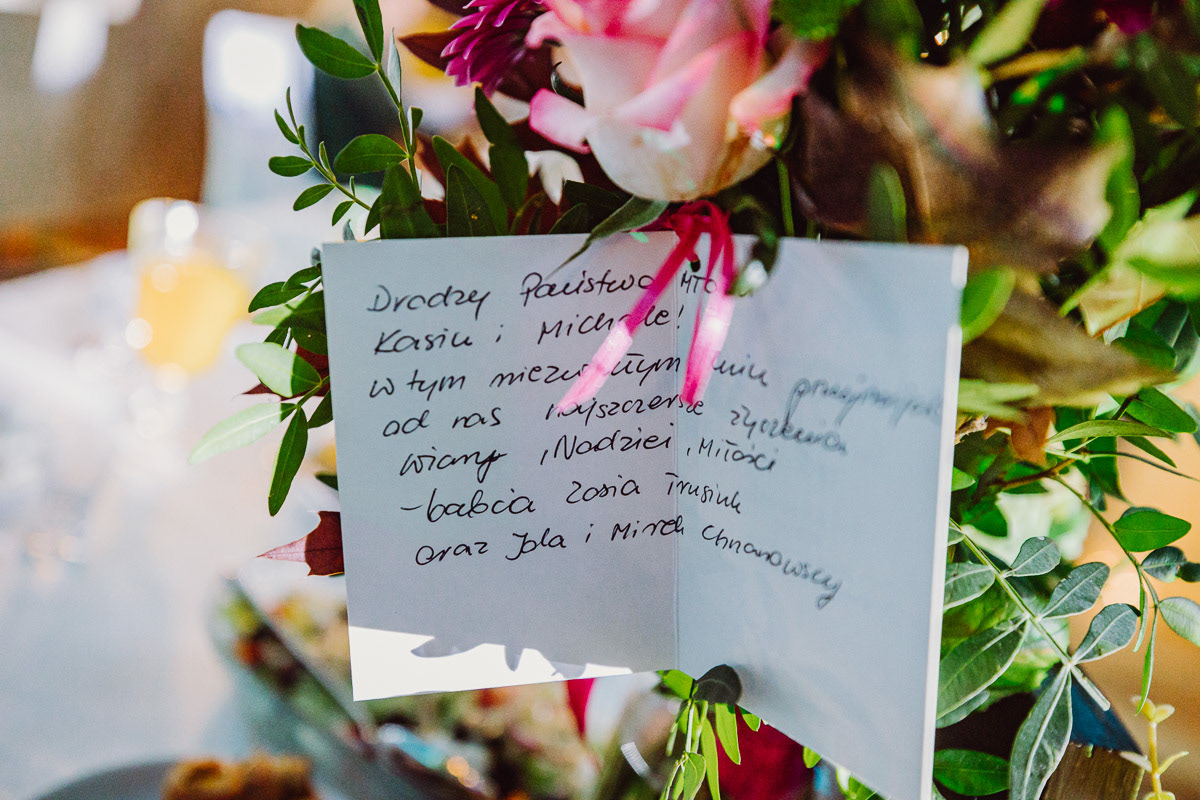 Drodzy Państwo Mło
Kasiu i Michale!
w tym niezwykłym dniu przyjmijcie
od nas najszczersze życzenia
wiary, Nadziei, Miłości
- babcia Zosia
oraz Jola i Mirek